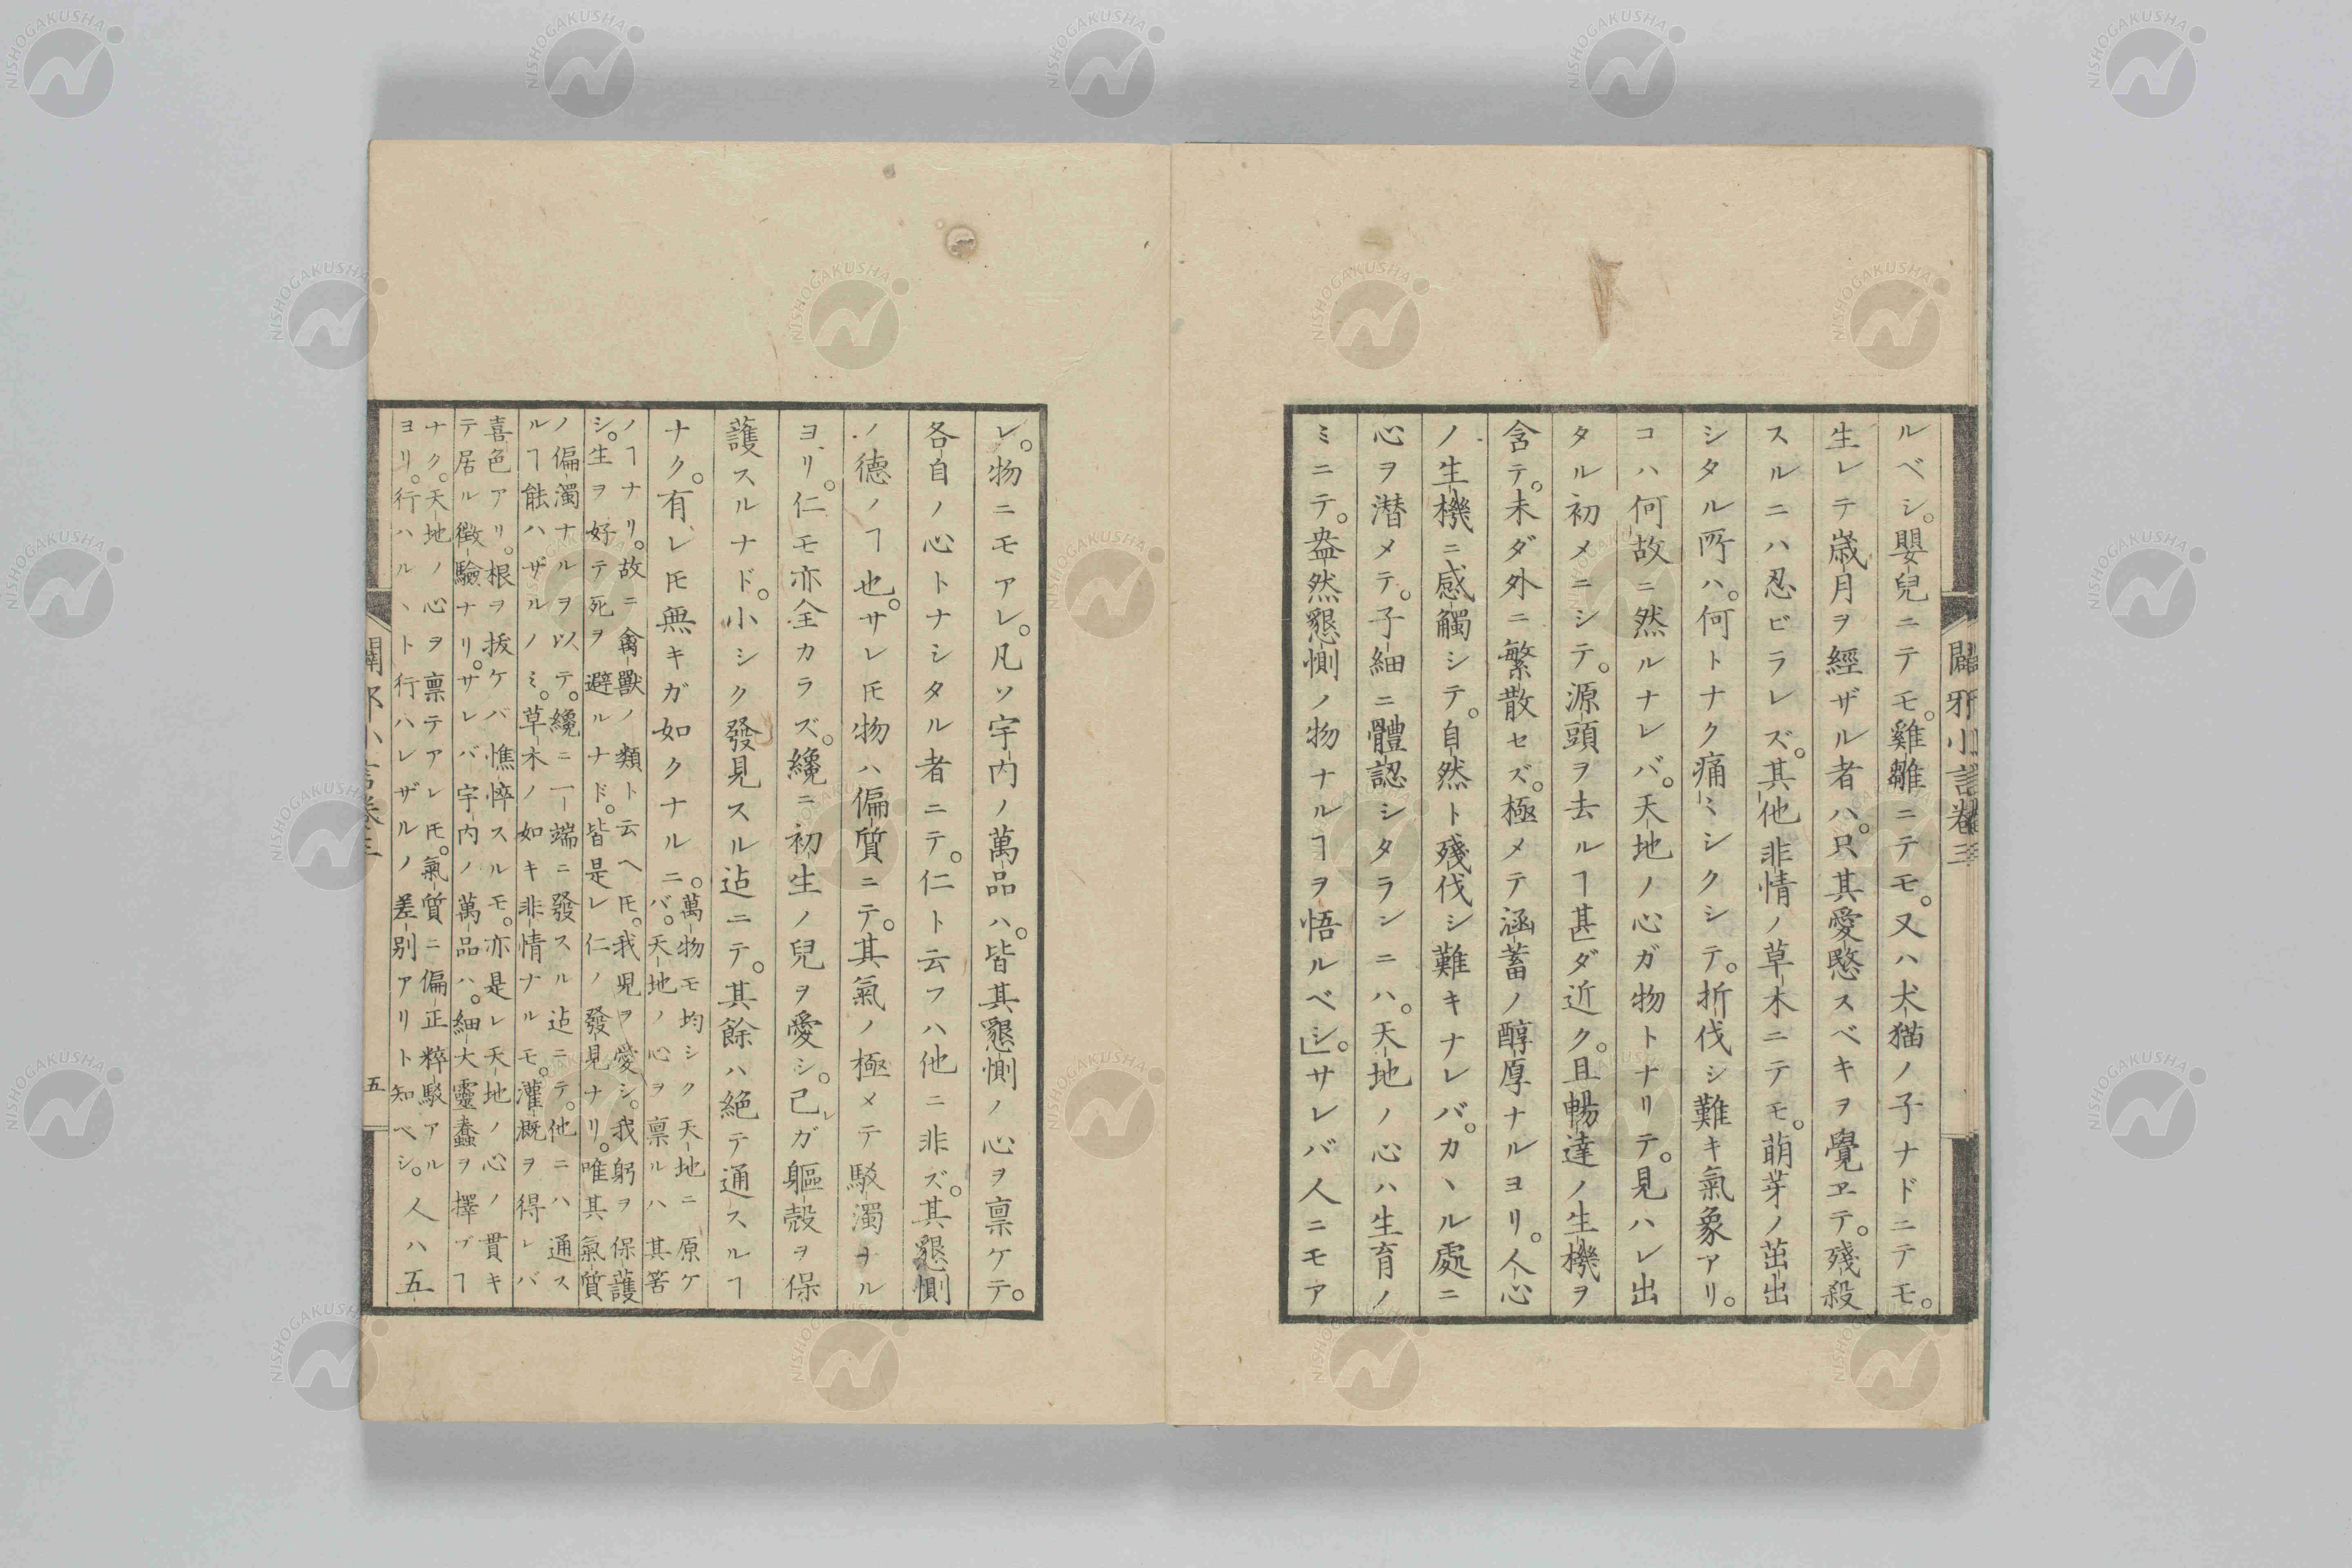 闢邪小言卷三
ルベシ。嬰兒ニテモ。雞雛ニテモ。又ハ犬猫ノ子ナドニテモ。
生レテ歳月ヲ經ザル者ハ。只其愛愍スベキヲ覺ヱテ。殘殺
スルニハ忍ビラレズ。其他非情ノ草木ニテモ。萌芽ノ茁出
シタル所ハ。何トナク痛ミシクシテ。折伐シ難キ氣象アリ。
コハ何故ニ然ルナレバ。天地ノ心ガ物トナリテ。見ハレ出
タル初メニシテ。源頭ヲ去ルヿ甚ダ近ク。且暢達ノ生機ヲ
含テ。未ダ外ニ繁散セズ。極メテ涵蓄ノ醇厚ナルヨリ。人心
ノ生機ニ感觸シテ。自然ト殘伐シ難キナレバ。カヽル處ニ
心ヲ潜メテ。子細ニ體認シタランニハ。天地ノ心ハ生育ノ
ミニテ。盎然懇惻ノ物ナルヿヲ悟ルベシ。」サレバ人ニモア
レ。物ニモアレ。凡ソ宇内ノ萬品ハ。皆其懇惻ノ心ヲ禀ケテ。
各自ノ心トナシタル者ニテ。仁ト云フハ他ニ非ズ。其懇惻
ノ德ノヿ也。サレ𪜈物ハ偏質ニテ。其氣ノ極メテ駁濁ヲル
ヨリ。仁モ亦全カラズ。纔ニ初生ノ兒ヲ愛シ。己レガ軀殻ヲ保
護スルナド。小シク發見スル迠ニテ。其餘ハ絶テ通スルヿ
ナク。有レ𪜈無キガ如クナルニ。萬物モ均シク天地ニ原ケ
バ。天地ノ心ヲ禀ルハ其筈
ノヿナリ。故ニ禽獸ノ類ト云ヘ𪜈。我兒ヲ愛シ。我躬ヲ保護
シ。生ヲ好テ死ヲ避ルナド。皆是レ仁ノ發見ナリ。唯其氣質
ノ偏濁ナルヲ以テ。纔ニ一端ニ發スル迠ニテ。他ニハ通ス
ルヿ能ハザルノミ。草木ノ如キ非情ナルモ。灌漑ヲ得レバ
喜色アリ。根ヲ拔ケバ憔悴スルモ。亦是レ天地ノ心ノ貫キ
テ居ル徴驗ナリ。サレバ宇内ノ萬品ハ。細大靈蠢ヲ擇ブヿ
ナク。天地ノ心ヲ禀テアレ𪜈。氣質ニ偏正粹駁アル
ヨリ。行ハルヽト行ハレザルノ差別アリト知ベシ。人ハ五
五